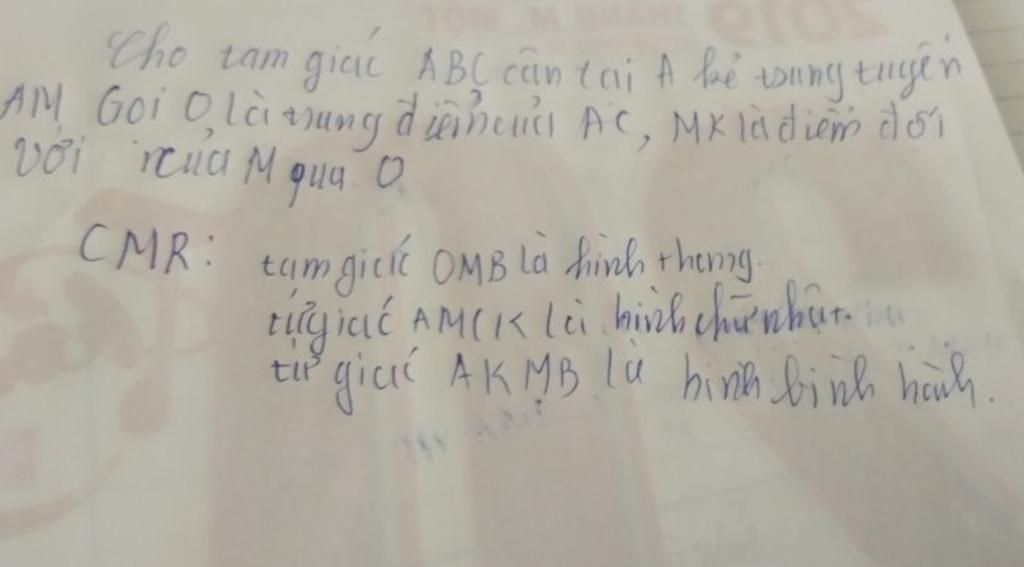 2019 THÁNG M. MỘT
Cho tam giác ABC cân tại A kẻ trung tuyến
AM Gọi O là trung điểm của AC, MK là điểm đối
với của M qua O
CMR: tam giác OMB là hình thang.
tứ giác AMCK là hình chữ nhật.
tứ giác AKMB là hình bình hành.